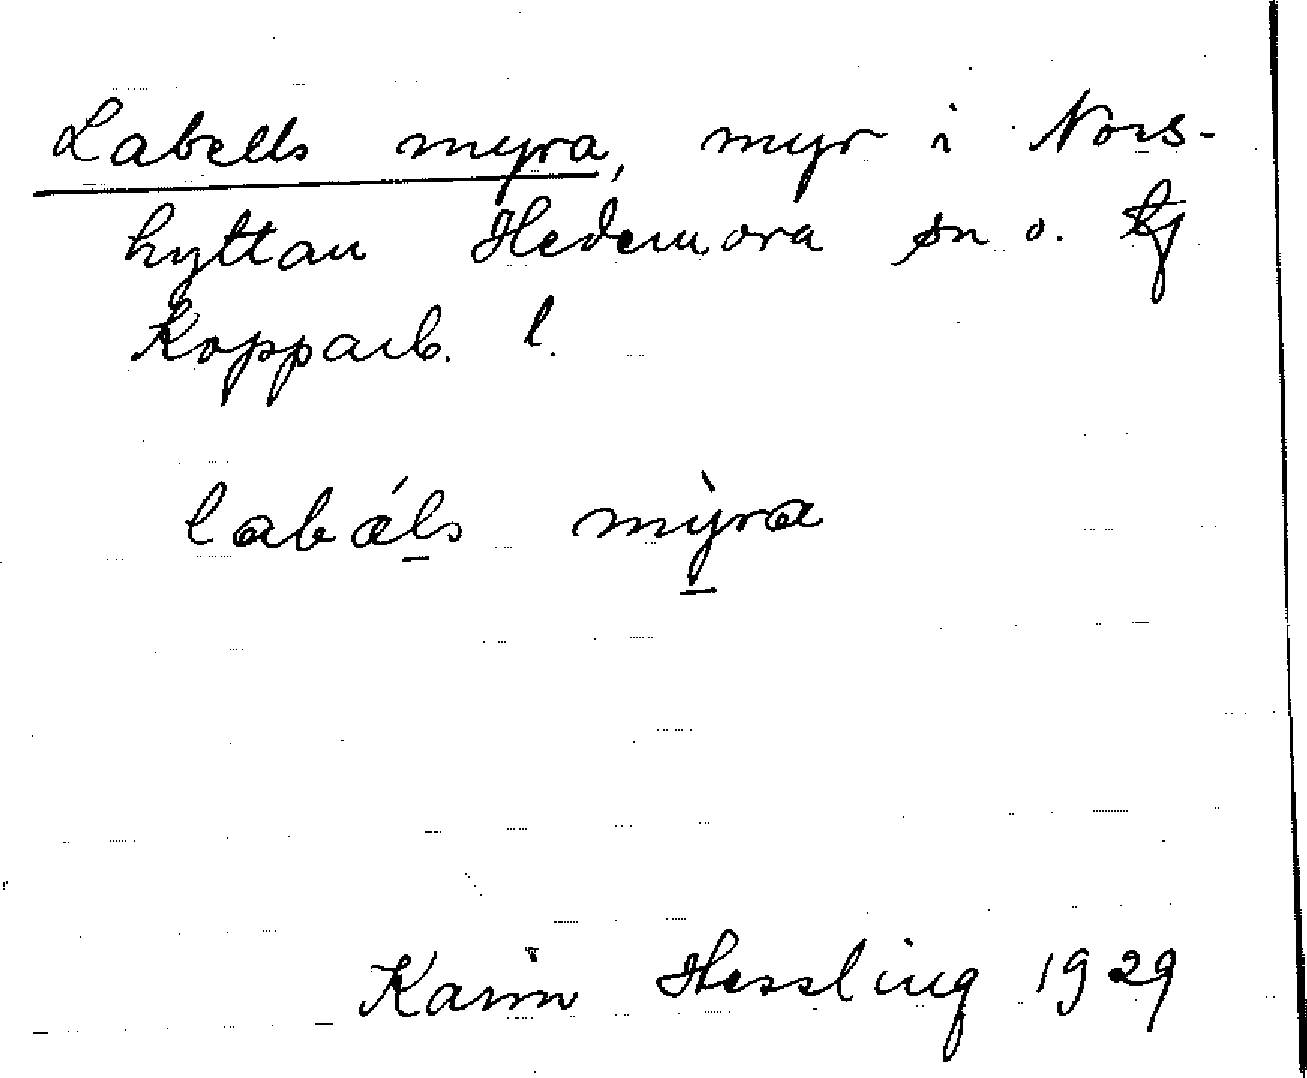 Labells myra, myr i Nors-
hyttan Hedemora sn o. tg
Kopparb. l.
labáls mỳra
Karin Hessling 1929